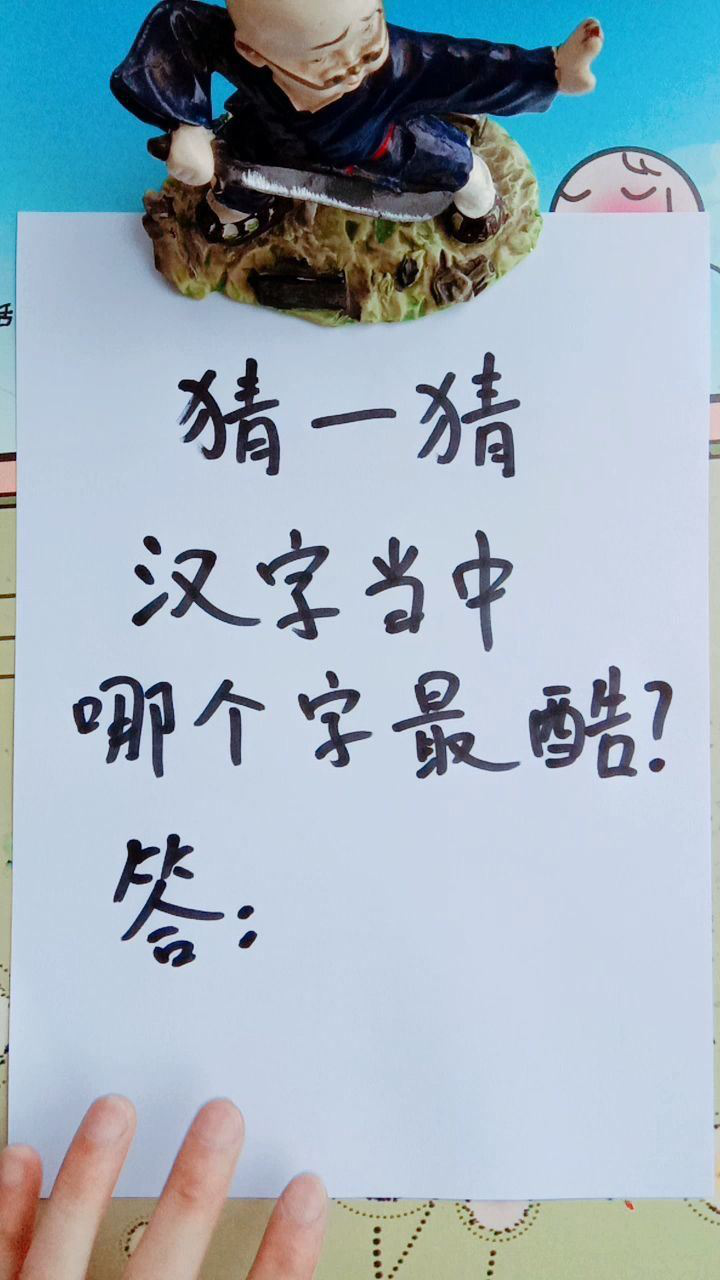 猜一猜
汉字当中
哪个字最酷?
答: